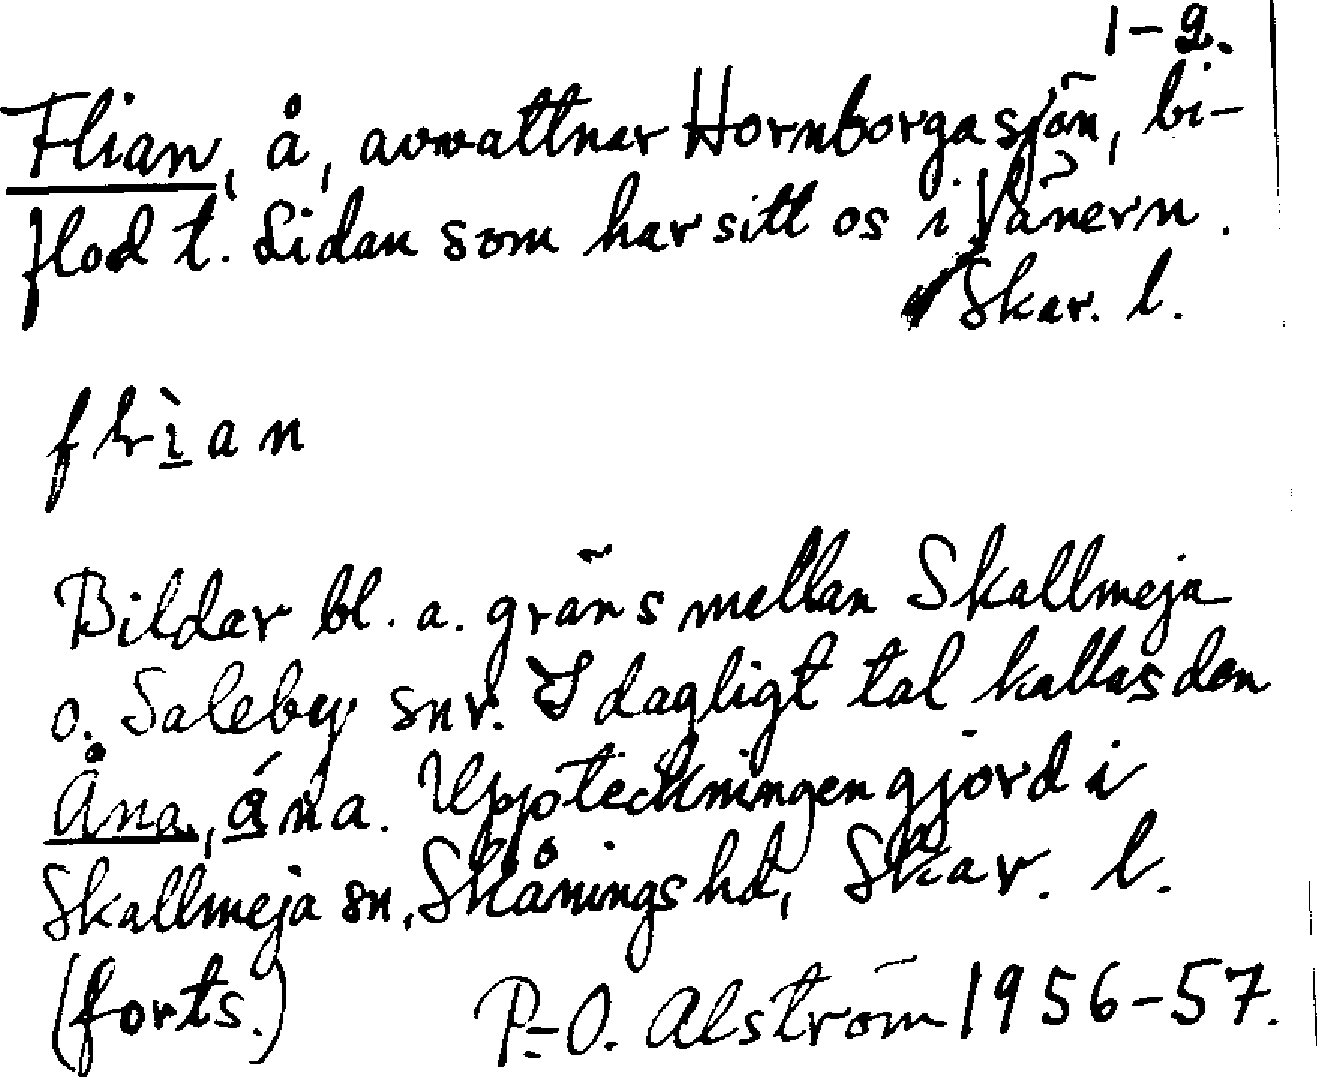 1-2.
Flian, å, avvattnar Hornborgasjön, bi-
flod t. Lidan som har sitt os i Vänern.
Skar. l.
flìan
Bildar bl. a. gräns mellan Skallmeja
o. Saleby snr. I dagligt tal kallas den
Åna, ána. Uppteckningen gjord i
Skallmeja sn, Skånings hd, Skar. l.
(forts.) P.-O. Alström 1956-57.